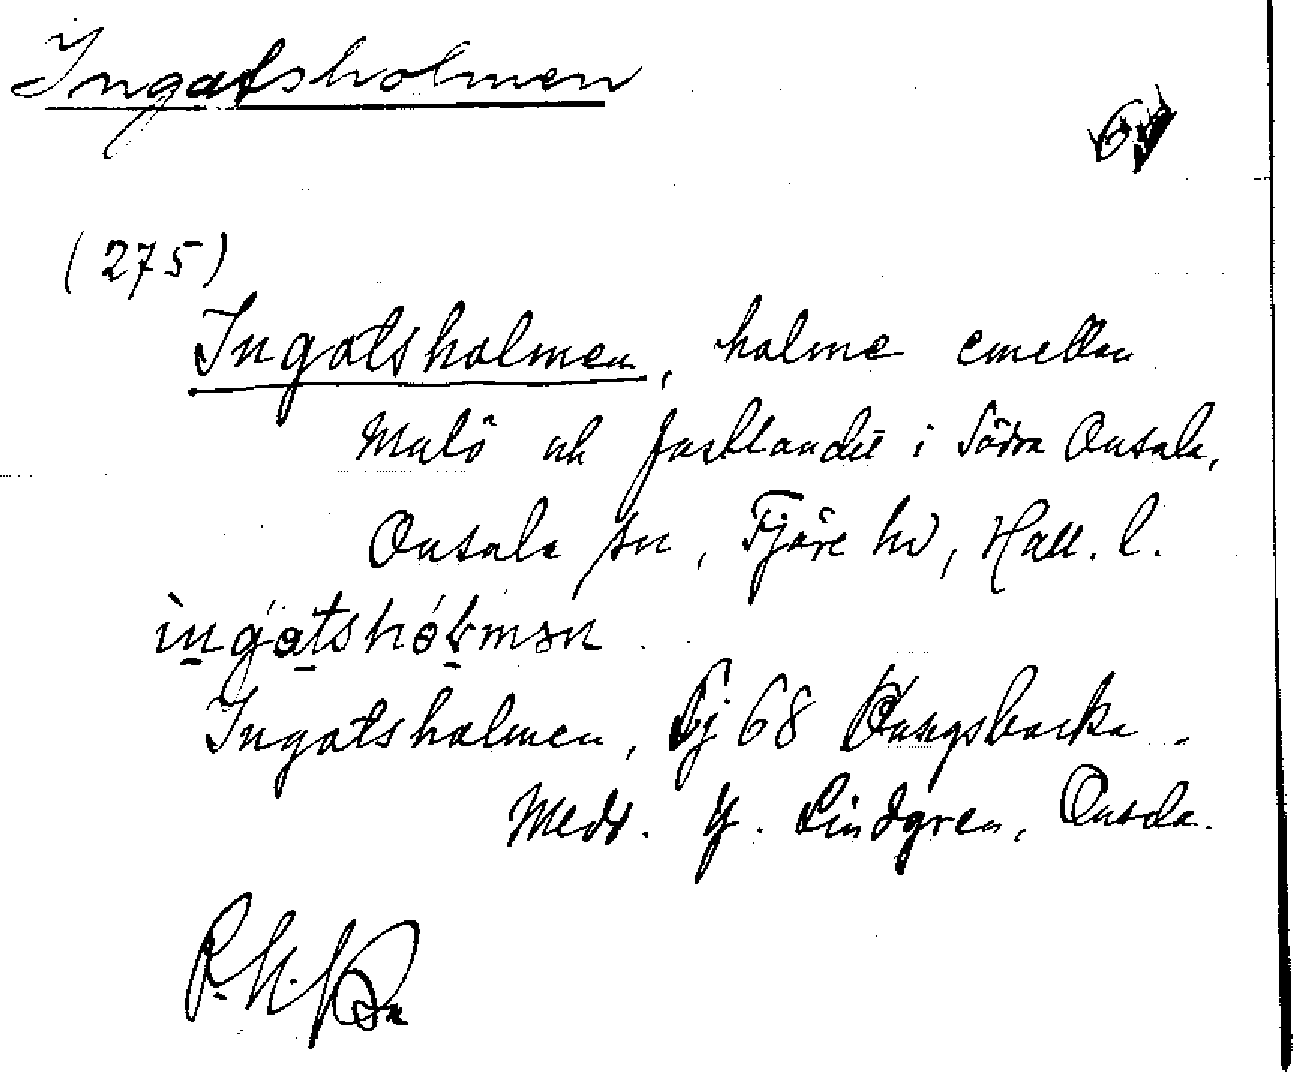 Ingatsholmen
(275)
Ingatsholmen, holme emellan
Malö och fastlandet i Södra Onsala,
Onsala sn, Fjäre hd, Hall. l.
Ingatsholmen, Fj 68 Kungsbacka.
Medd. Lindgren, Onsala.